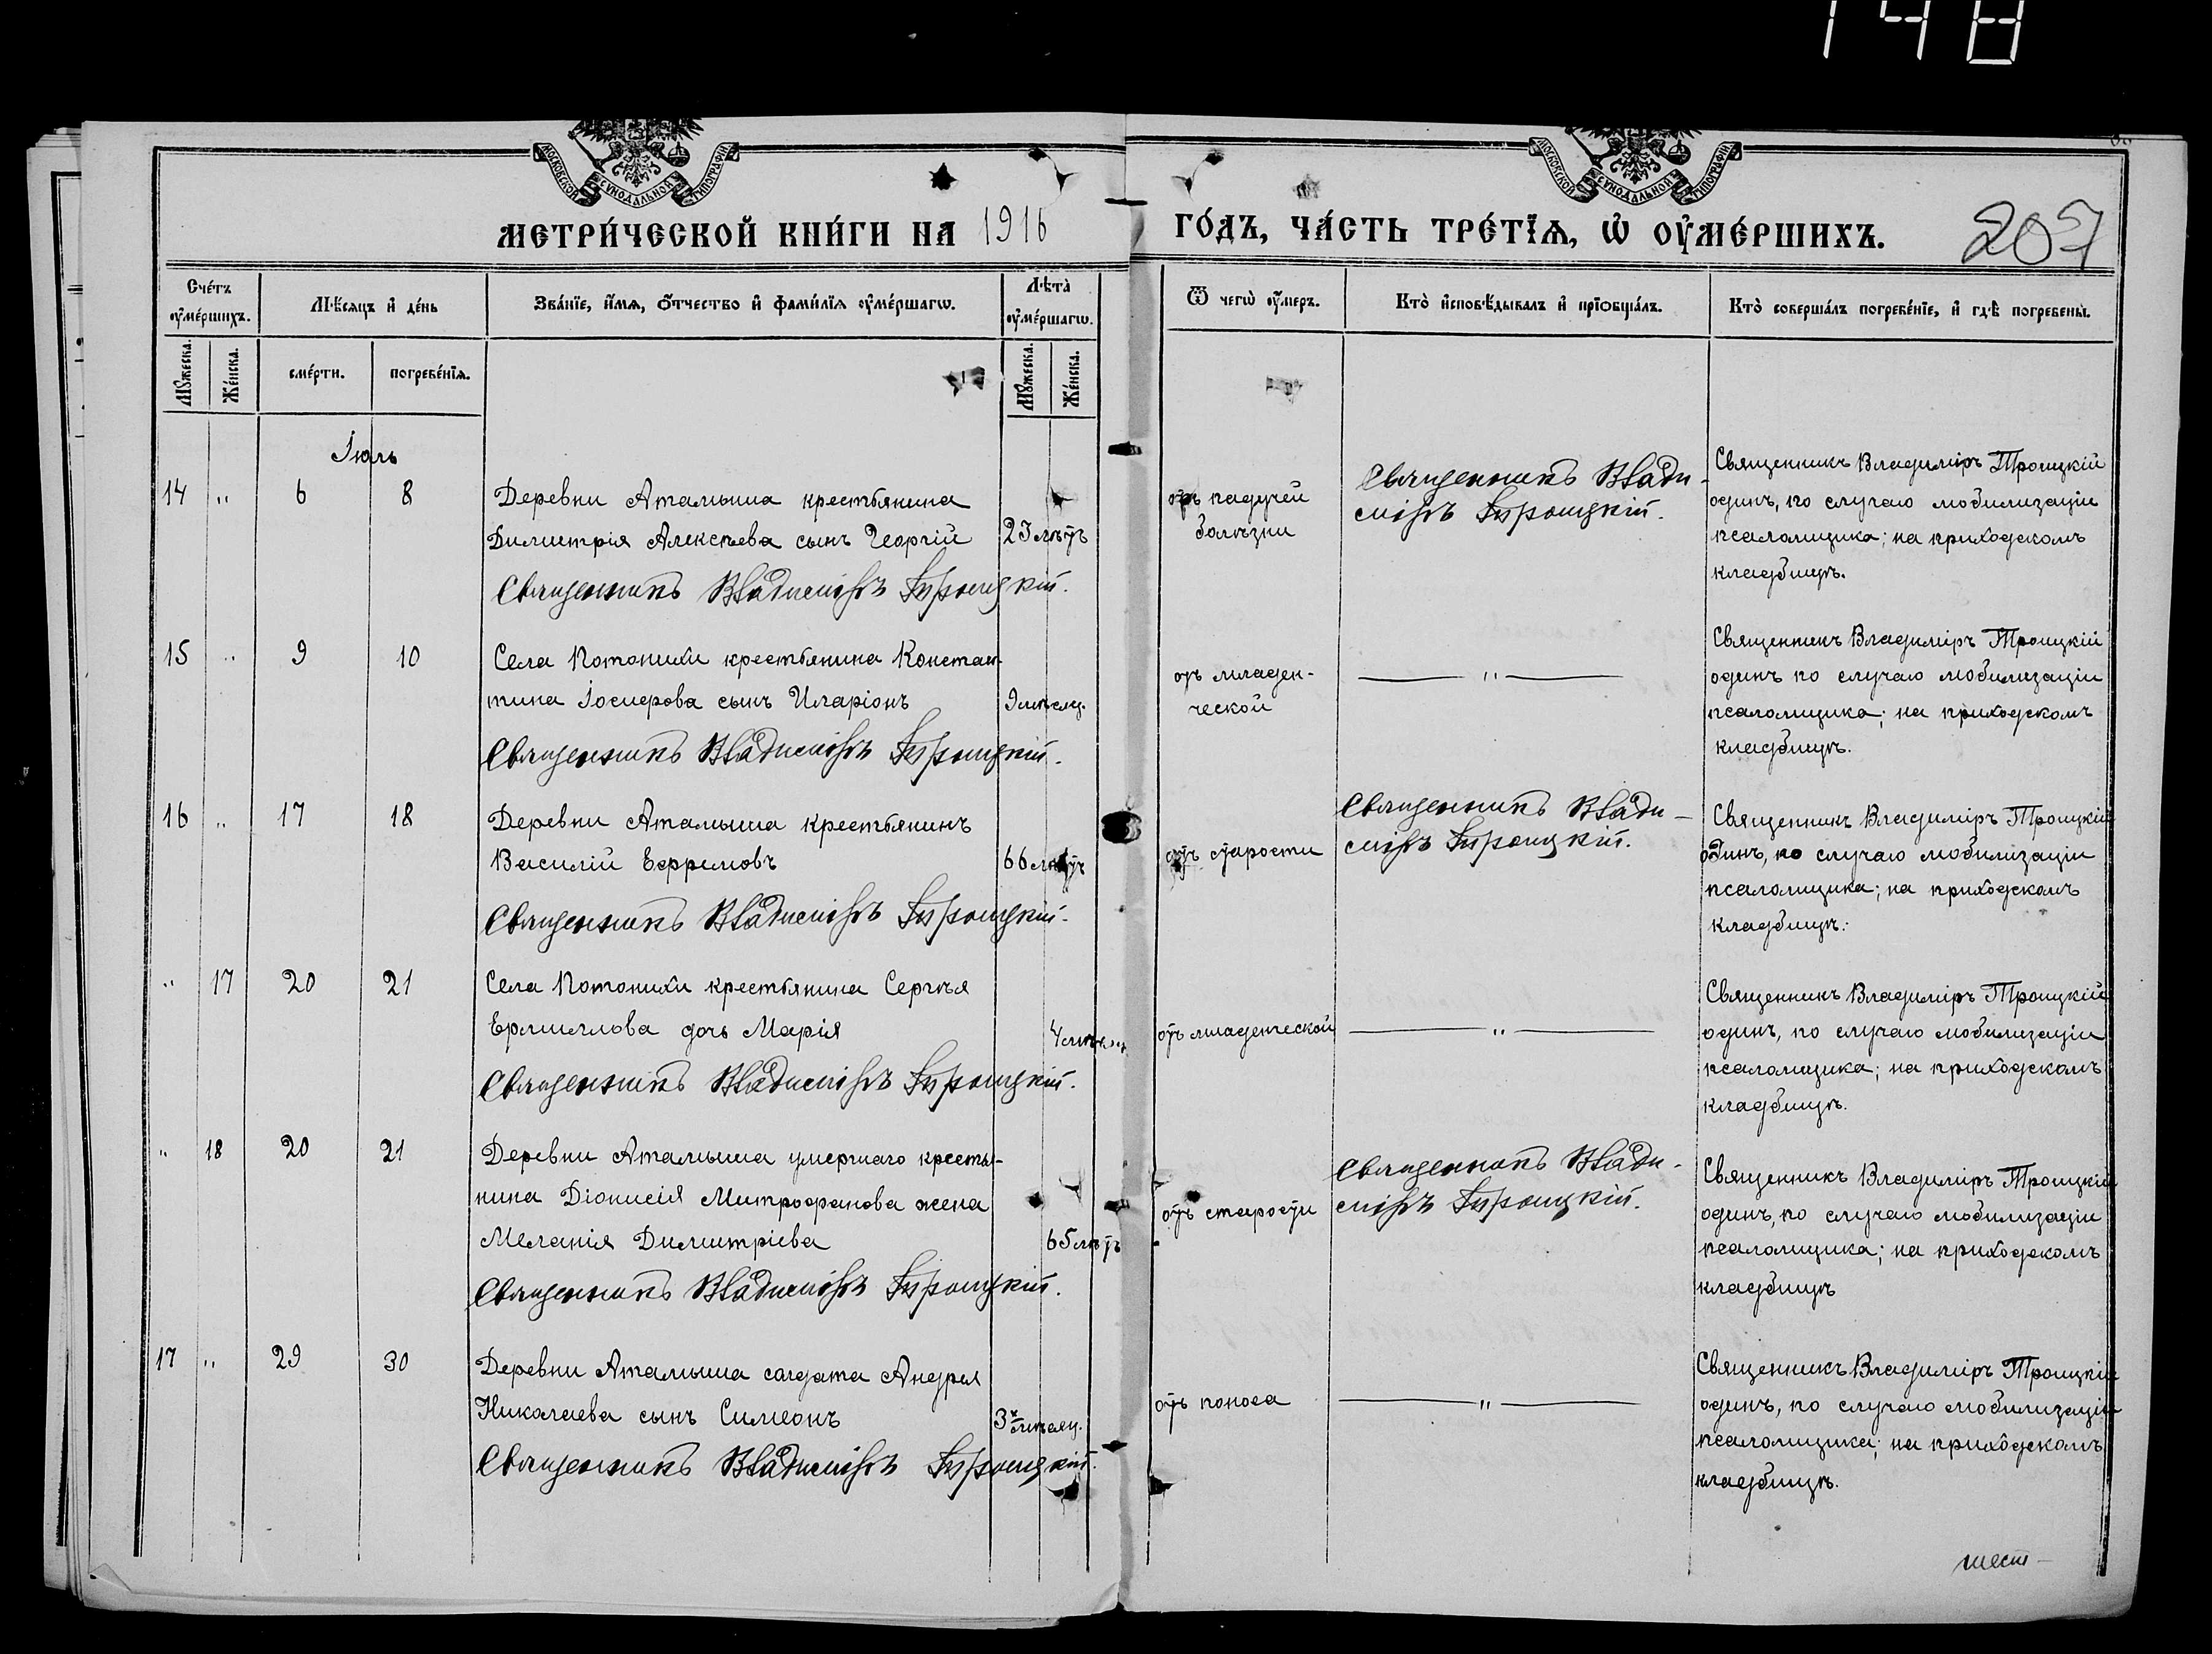 148
МОСКОВСКОЙ СѴНОДАЛЬНОЙ ТИПОГРАФІИ
МОСКОВСКОЙ СѴНОДАЛЬНОЙ ТИПОГРАФІИ
МЕТРИ́ЧЕСКОЙ КНИ́ГИ НА 1916
ГО́ДЪ, ЧА́СТЬ ТРЕ́ТЇѦ, Ѡ҆ ОУ҆МЕ́РШИХЪ.
207
Сче́тъ оу҆ме́ршихъ.
Мѣ́сѧцъ и҆ де́нь
Зва́нїе, и҆́мѧ, ѻ҆́тчество и҆ фами́лїѧ оу҆ме́ршагѡ.
Лѣта̀ оу҆ме́ршагѡ.
Ѿ чегѡ̀ оу҆́меръ.
Кто̀ и҆сповѣ́дывалъ и҆ прїѡбща́лъ.
Кто̀ соверша́лъ погребе́нїе, и҆ гдѣ̀ погребены̀.
Мꙋ́жеска.
Же́нска.
сме́рти.
погребе́нїѧ.
Мꙋ́жеска.
Же́нска.
Іюль
14 " 6 8
Деревни Атамыша крестьянина
Димитрія Алексѣева сынъ Георгій 23 лѣтъ
Священникъ Владиміръ Троицкій.
отъ падучей
болѣзни
Священникъ Влади-
міръ Троицкій.
Священникъ Владиміръ Троицкій
одинъ, по случаю мобилизаціи
псаломщика; на приходскомъ
кладбищѣ.
15 " 9 10
Села Потонихи крестьянина Констан-
тина Іосифова сынъ Иларіонъ 9 мѣсяц.
Священникъ Владиміръ Троицкій.
отъ младен-
ческой
— " —
Священникъ Владиміръ Троицкій
одинъ по случаю мобилизаціи
псаломщика; на приходскомъ
кладбищѣ.
16 " 17 18
Деревни Атамыша крестьянинъ
Василій Ефремовъ 66 лѣтъ
Священникъ Владиміръ Троицкій.
отъ старости
Священникъ Влади-
міръ Троицкій.
Священникъ Владиміръ Троицкій
одинъ, по случаю мобилизаціи
псаломщика; на приходскомъ
кладбищѣ.
" 17 20 21
Села Потонихи крестьянина Сергѣя
Ермилова дочь Марія
Священникъ Владиміръ Троицкій.
отъ младенческой
— " —
Священникъ Владиміръ Троицкій
одинъ, по случаю мобилизаціи
псаломщика; на приходскомъ
кладбищѣ.
" 18 20 21
Деревни Атамыша умершаго крестья-
нина Діонисія Митрофанова жена
Меланія Димитріева 65 лѣтъ
Священникъ Владиміръ Троицкій.
отъ старости
Священникъ Влади-
міръ Троицкій.
Священникъ Владиміръ Троицкій
одинъ, по случаю мобилизаціи
псаломщика; на приходскомъ
кладбищѣ
17 " 29 30
Деревни Атамыша солдата Андрея
Николаева сынъ Симеонъ 3х мѣсяц.
Священникъ Владиміръ Троицкій.
отъ поноса
— " —
Священникъ Владиміръ Троицкій
одинъ, по случаю мобилизаціи
псаломщика; на приходскомъ
кладбищѣ.
шест-